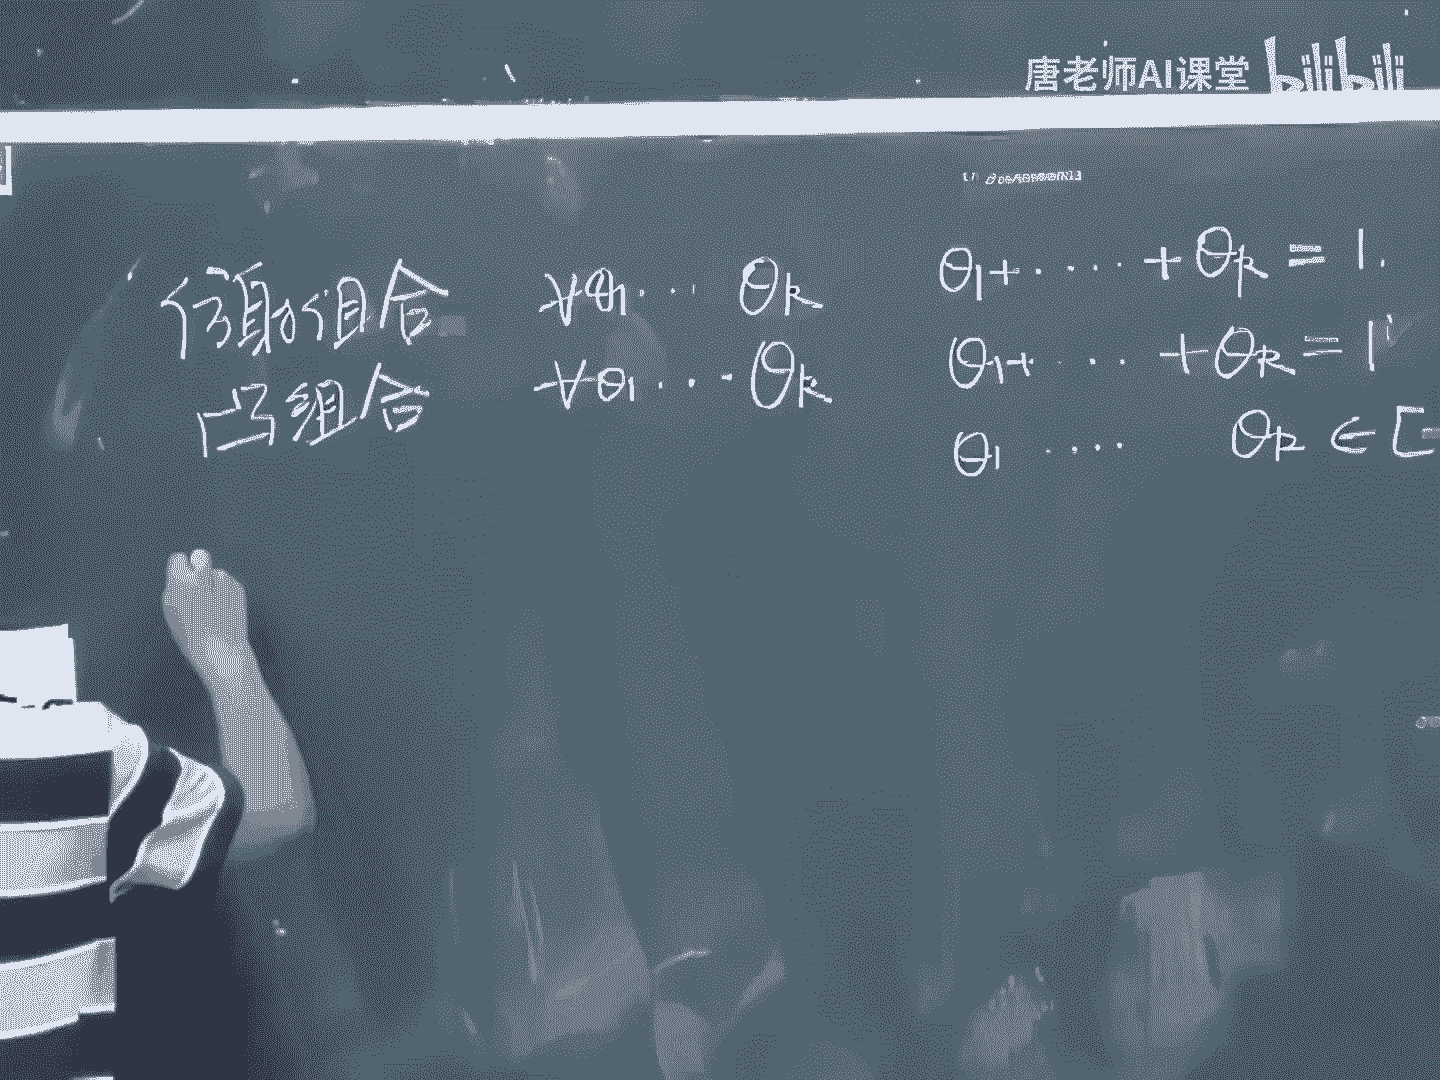 唐老师AI课堂 bilibili
仿射组合 ∀θ1 ... θk θ1+ .... +θk = 1.
凸组合 ∀θ1 ... θk θ1+ .... +θk = 1
θ1 .... θk ∈ [